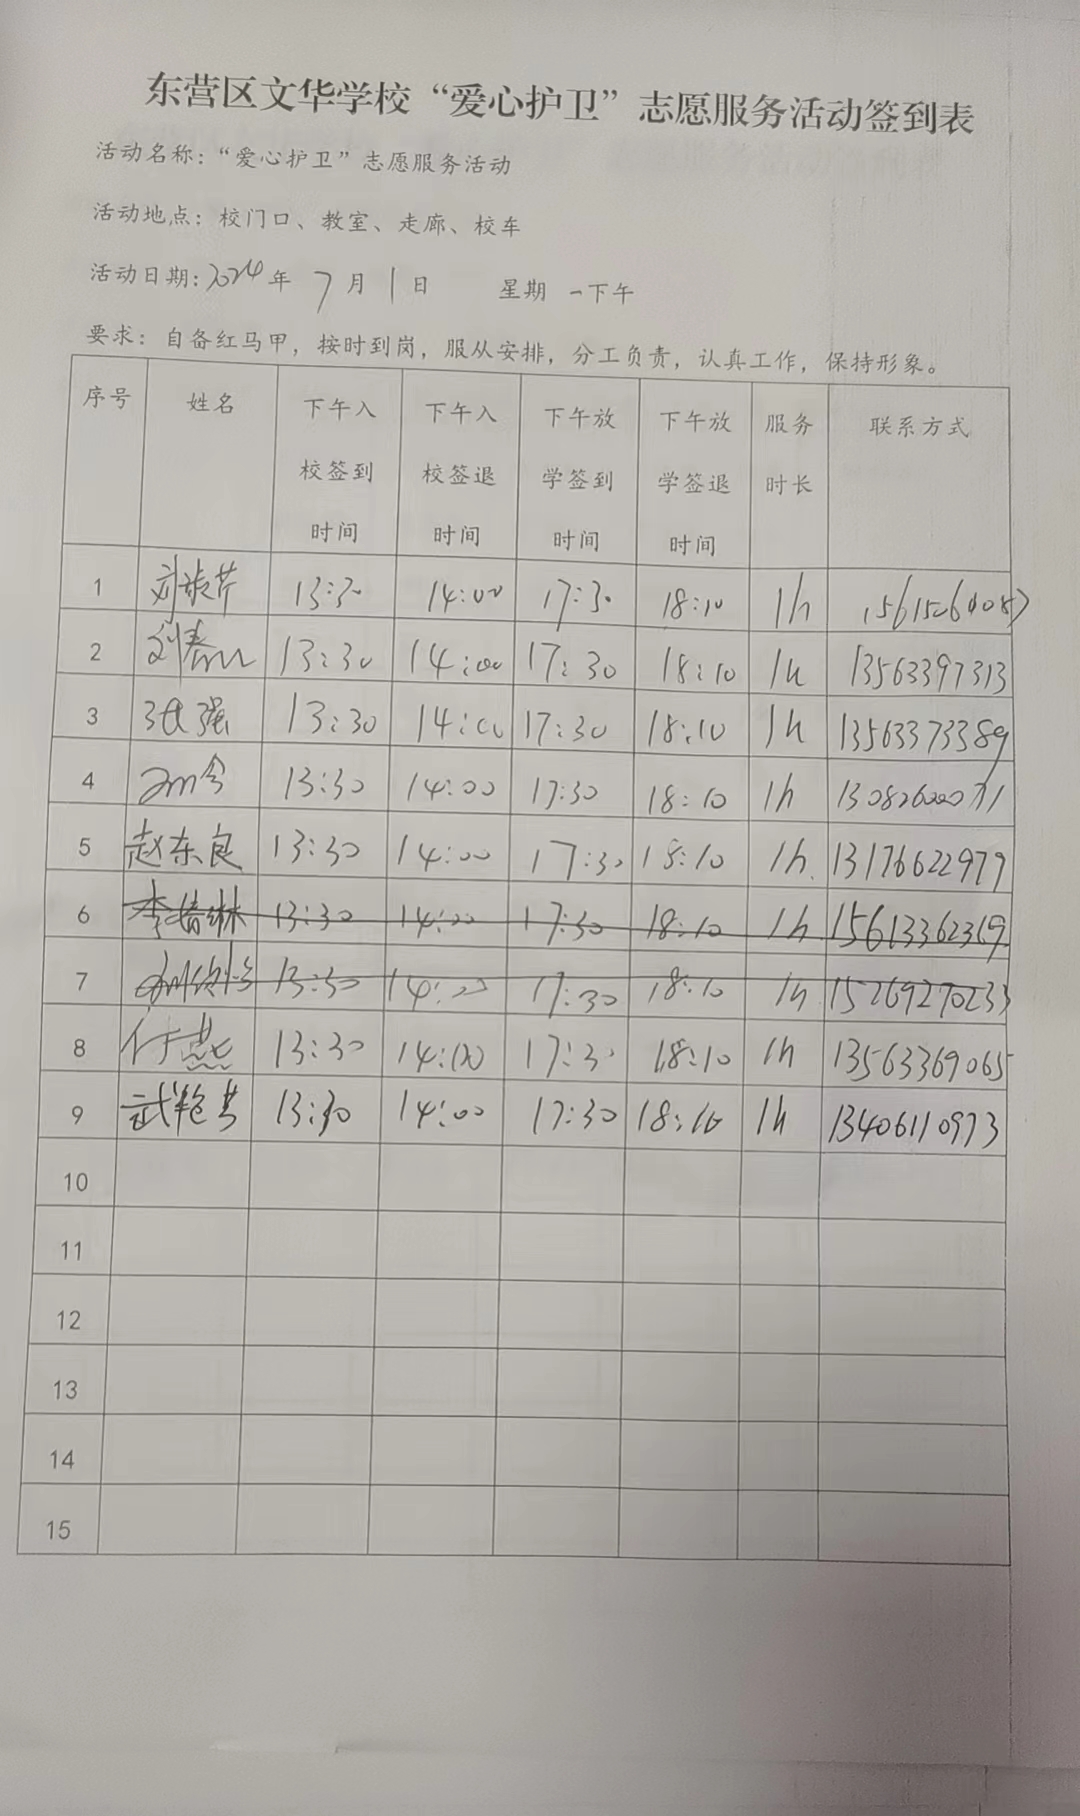 东营区文华学校“爱心护卫”志愿服务活动签到表
活动名称：“爱心护卫”志愿服务活动
活动地点：校门口、教室、走廊、校车
活动日期：2024年 7月1日 星期 一下午
要求：自备红马甲，按时到岗，服从安排，分工负责，认真工作，保持形象。
序号 姓名 下午入校签到时间 下午入校签退时间 下午放学签到时间 下午放学签退时间 服务时长 联系方式
1 13:30 14:00 17:30 18:10 1h
2 13:30 14:00 17:30 18:10 1h 13563397313
3 张强 13:30 14:00 17:30 18:10 1h 13563373389
4 13:30 14:00 17:30 18:10 1h
5 赵东良 13:30 14:00 17:30 18:10 1h 13176622979
6 13:30 14:00 17:30 18:10 1h 15613362369
7 13:30 14:00 17:30 18:10 1h 15269270233
8 付燕 13:30 14:00 17:30 18:10 1h 13563369065
9 13:30 14:00 17:30 18:10 1h 13406110973
10
11
12
13
14
15